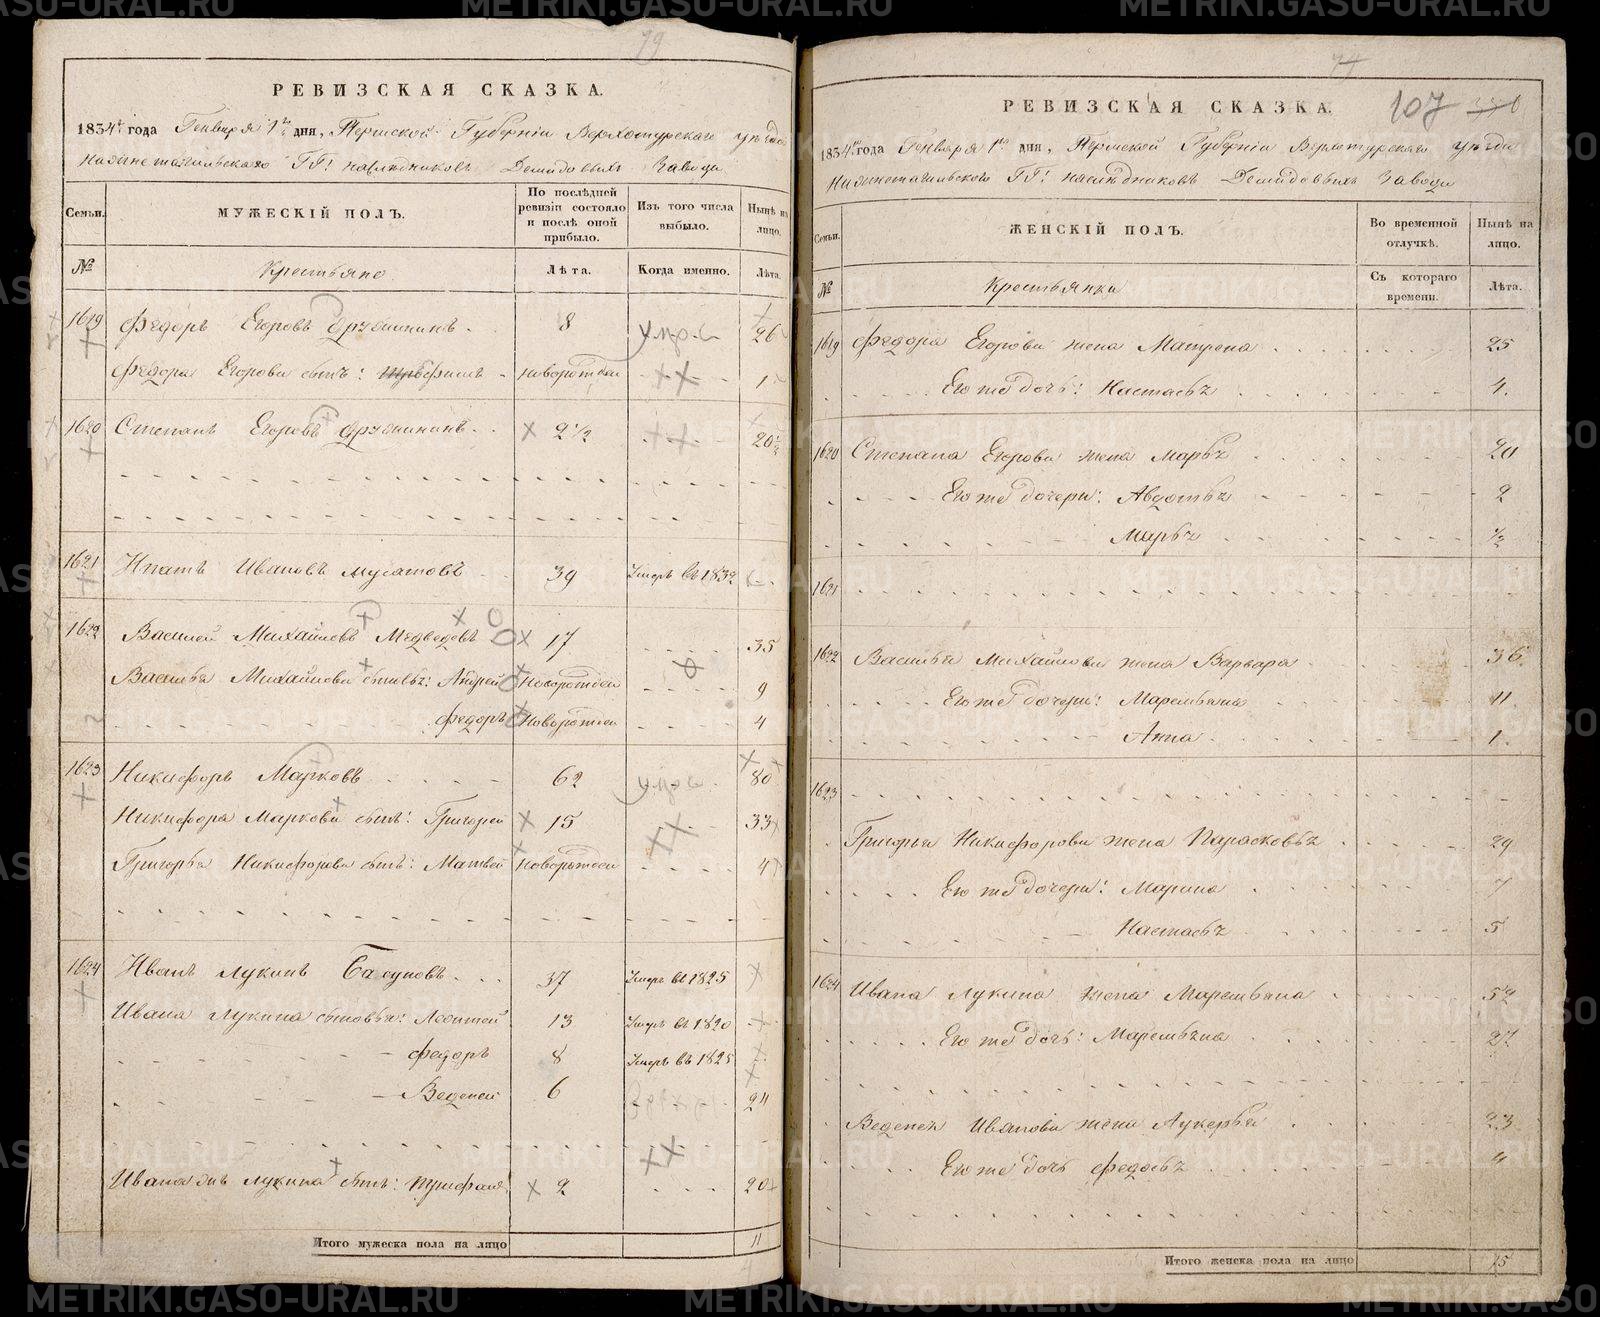 79
РЕВИЗСКАЯ СКАЗКА.
1834го года Генваря 1го дня, Пермской Губернiи Верхотурскаго уѣзда
Нижнетагильскаго ГГ: наслѣдниковъ Демидовыхъ Завода
Семьи.
МУЖЕСКIЙ ПОЛЪ.
По послѣдней ревизiи состояло и послѣ оной прибыло.
Изъ того числа выбыло.
Нынѣ на лицо.
№
Крестьяне
Лѣта.
Когда именно.
Лѣта.
1619 Федоръ Егоровъ Дружининъ 8 26
Федора Егорова сынъ: Трефилъ новорожден 1
1620 Степанъ Егоровъ Дружининъ 2 1/2 20 1/2
1621 Ипатъ Ивановъ Мусатовъ 39 Умеръ въ 1832
1622 Василей Михайловъ Медведевъ 17 35
Василья Михайлова сыновья: Андрей новорожден 9
Федоръ новорожден 4
1623 Никифоръ Марковъ 62 80
Никифора Маркова сынъ: Григорей 15 33
Григорья Никифорова сынъ: Матвей новорожден 4
1624 Иванъ Лукинъ Басуновъ 37 Умеръ въ 1825
Ивана Лукина сыновья: Леонтей 13 Умеръ въ 1820
Федоръ 8 Умеръ въ 1825
Веденей 6 24
Ивана Лукина сынъ: 2 20
Итого мужеска пола на лицо 11
107
РЕВИЗСКАЯ СКАЗКА.
1834го года Генваря 1го дня, Пермской Губернiи Верхотурскаго уѣзда
Нижнетагильского ГГ: наслѣдниковъ Демидовыхъ Завода
Семьи.
ЖЕНСКIЙ ПОЛЪ.
Во временной отлучкѣ.
Нынѣ на лицо.
№
Крестьянки
Съ котораго времени.
Лѣта.
1619 Федора Егорова жена Матрена 25
Его же дочь: Настасья 4
1620 Степана Егорова жена Марья 20
Его же дочери: Авдотья 2
Марья 1/2
1621
1622 Василья Михайлова жена Варвара 36
Его же дочери: Маремьяна 11
Анна 1
1623
Григорья Никифорова жена Парасковья 29
Его же дочери: Марина 7
Настасья 5
1624 Ивана Лукина жена Маремьяна 52
Его же дочь: Маремьяна 27
Веденея Иванова жена Лукерья 23
Его же дочь Федосья 4
Итого женска пола на лицо 15
METRIKI.GASO-URAL.RU